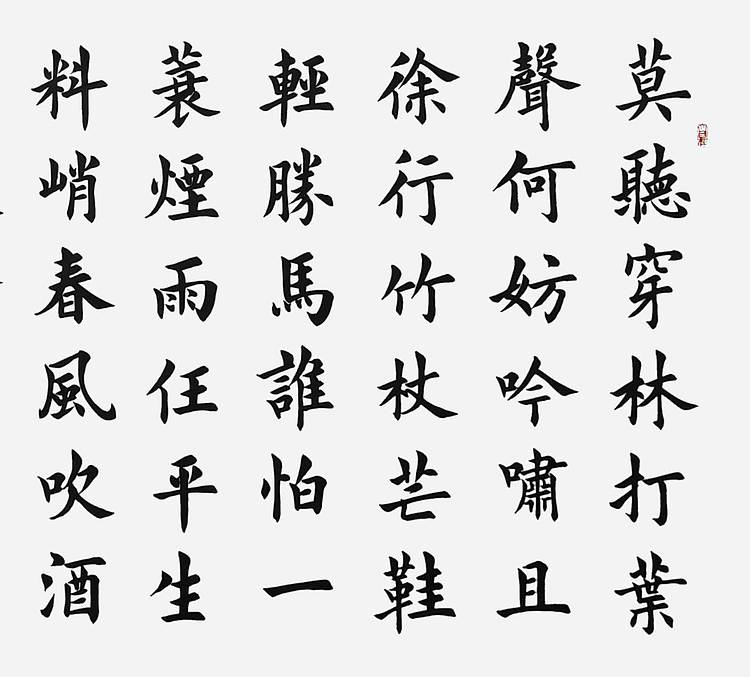 莫聽穿林打葉
聲何妨吟嘯且
徐行竹杖芒鞋
輕勝馬誰怕一
蓑煙雨任平生
料峭春風吹酒